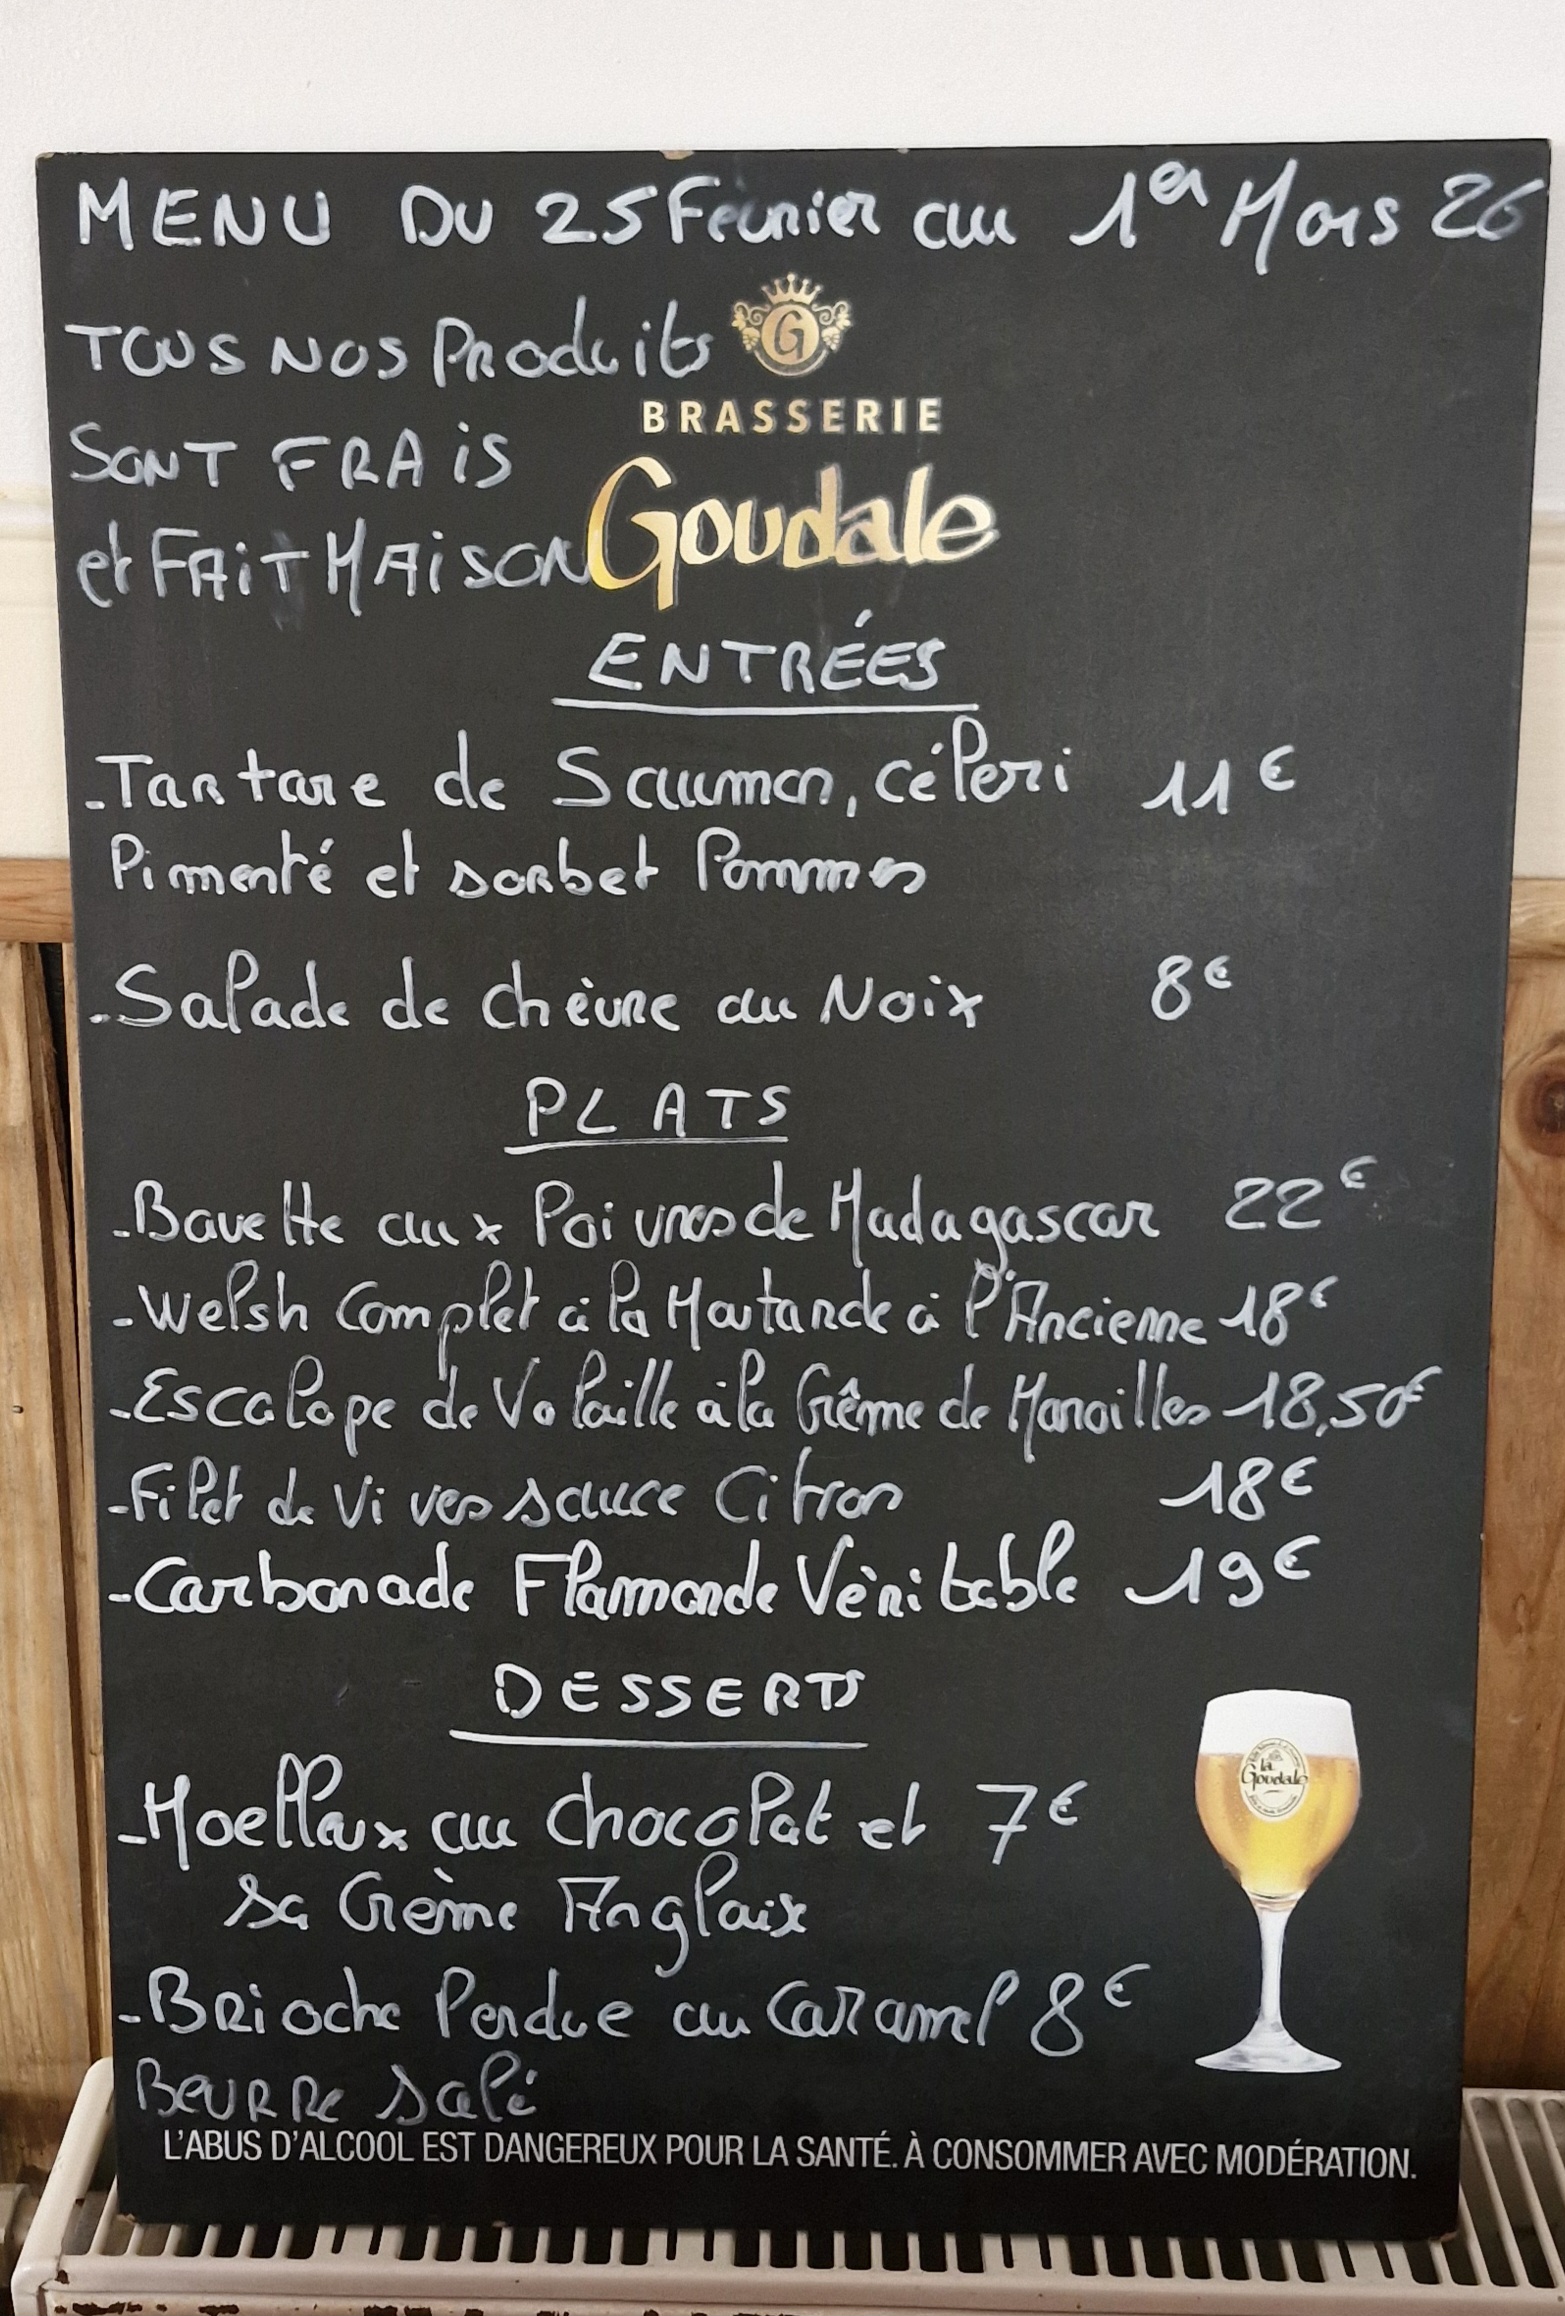 MENU DU 25 Février au 1er Mars 26
TOUS NOS Produits
BRASSERIE
SONT FRAiS
Goudale
et FAiT MAiSON
ENTRÉES
-Tartare de Saumon, céleri 11€
Pimenté et sorbet Pommes
-Salade de chèvre au Noix 8€
PLATS
-Bavette aux Poivres de Madagascar 22€
-Welsh Complet à la Moutarde à l'Ancienne 18€
-Escalope de Volaille à la Crême de Maroilles 18,50€
-Filet de Vives sauce Citron 18€
-Carbonade Flamande Vèritable 19€
DESSERTS
-Moelleux au chocolat et 7€
sa Crème Anglaix
-Brioche Perdue au Caramel 8€
BEURRE Salé
la Goudale
L'ABUS D'ALCOOL EST DANGEREUX POUR LA SANTÉ. À CONSOMMER AVEC MODÉRATION.